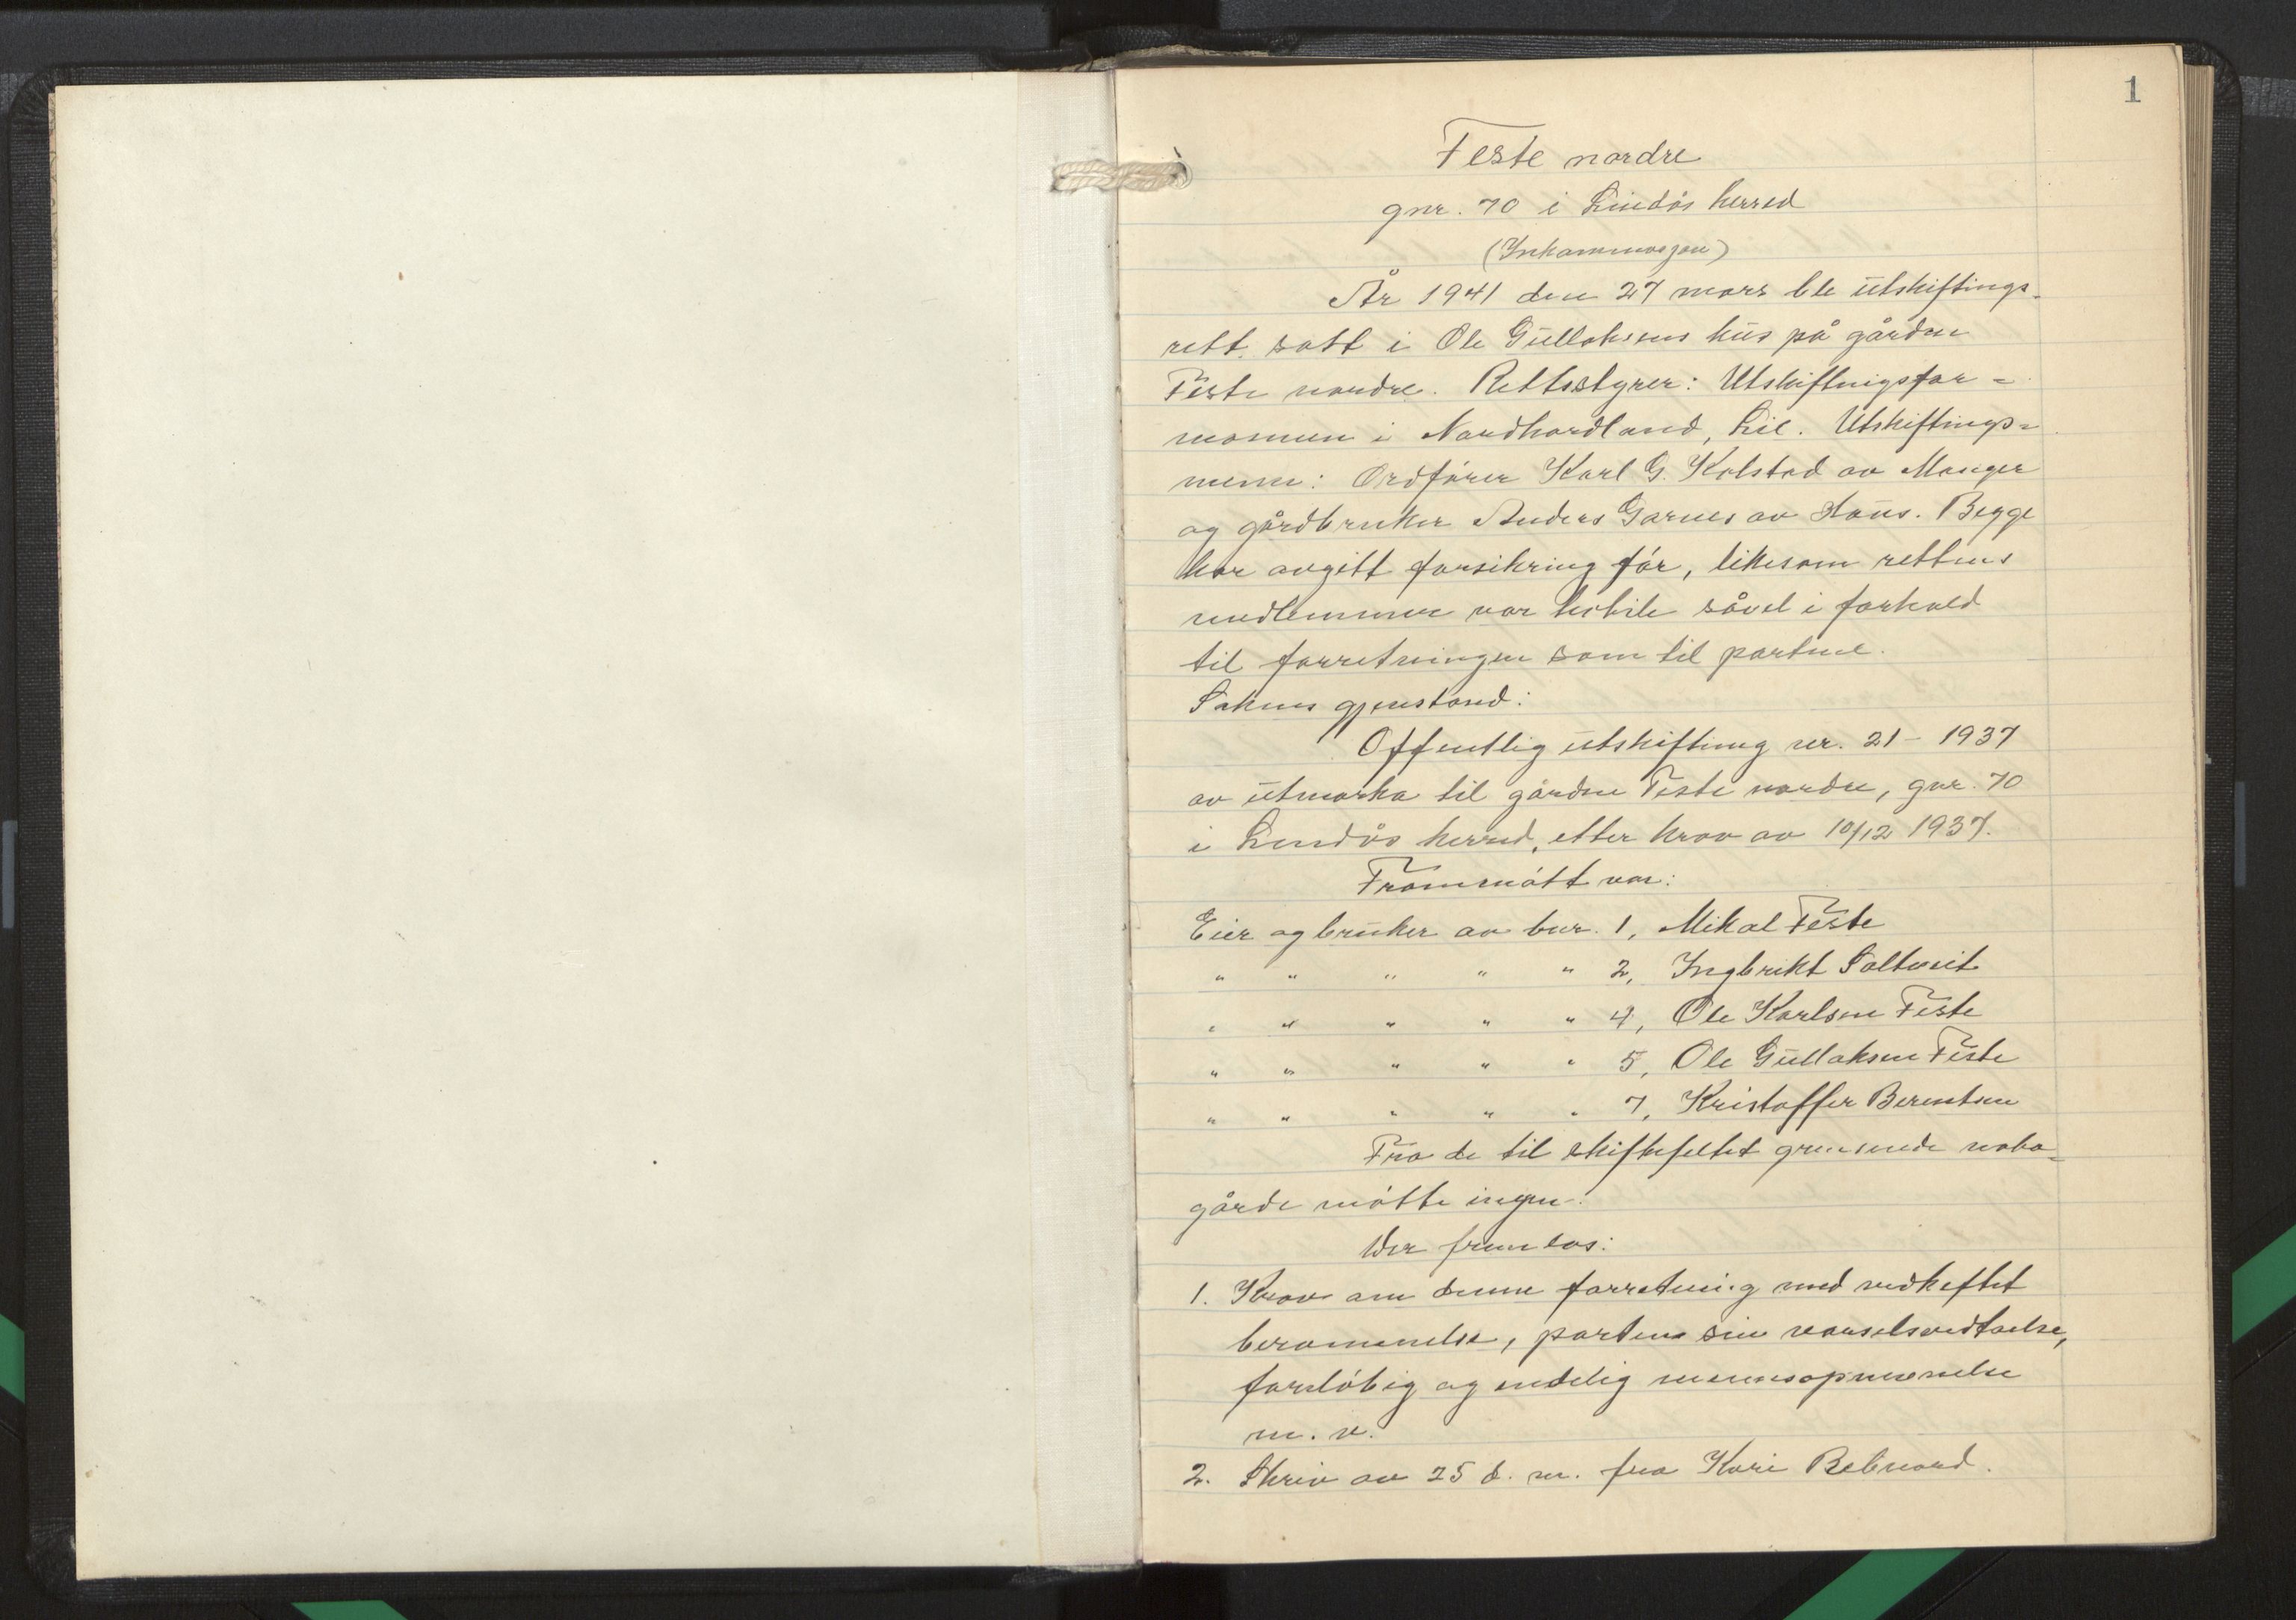 1
Feste nordre
gnr. 70 i Lindås herred
(Inkaminasjon)
År 1941 den 27 mars ble utskiftings-
rett satt i Ole Gullaksens hus på gården
Feste nordre. Rettsstyrer: Utskiftningsfor-
mannen i Nordhordland, Lie. Utskiftings-
menn: Ordfører Karl G. Kolstad av Manger
og gårdbruker Anders Garnes av Haus. Begge
har avgitt forsikring før, likesom rettens
medlemmer var habile såvel i forhold
til forretningen som til partene.
Sakens gjenstand:
Offentlig utskifting nr. 21 - 1937
av utmarka til gården Feste nordre, gnr. 70
i Lindås herred, etter krav av 10/12 1937.
Frammøtt var:
Eier og bruker av bnr. 1, Mikal Feste
" " " " " 2, Ingbrikt Saltveit
" " " " " 4, Ole Karlsen Feste
" " " " " 5, Ole Gullaksen Feste
" " " " " 7, Kristoffer Berentsen
Fra de til skiftefeltet grensende nabo-
gårde møtte ingen.
Der framlas:
1. Krav om denne forretning med vedheftet
berammelse, partenes sin varselsvedtaelse,
foreløbig og endelig mennsopnevnelse
m. v.
2. Skriv av 25 d. m. fra Kari